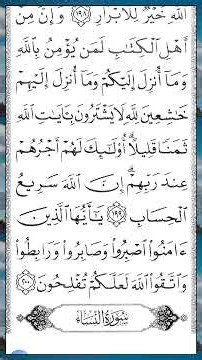 ٱللَّهِ خَيْرٌ لِّلْأَبْرَارِ ١٩٨ وَإِنَّ مِنْ
أَهْلِ ٱلْكِتَٰبِ لَمَن يُؤْمِنُ بِٱللَّهِ
وَمَآ أُنزِلَ إِلَيْكُمْ وَمَآ أُنزِلَ إِلَيْهِمْ
خَٰشِعِينَ لِلَّهِ لَا يَشْتَرُونَ بِـَٔايَٰتِ ٱللَّهِ
ثَمَنًا قَلِيلًا ۗ أُو۟لَٰٓئِكَ لَهُمْ أَجْرُهُمْ
عِندَ رَبِّهِمْ ۗ إِنَّ ٱللَّهَ سَرِيعُ
ٱلْحِسَابِ ١٩٩ يَٰٓأَيُّهَا ٱلَّذِينَ
ءَامَنُوا۟ ٱصْبِرُوا۟ وَصَابِرُوا۟ وَرَابِطُوا۟
وَٱتَّقُوا۟ ٱللَّهَ لَعَلَّكُمْ تُفْلِحُونَ ٢٠٠
سُورَةُ النِّسَاءِ